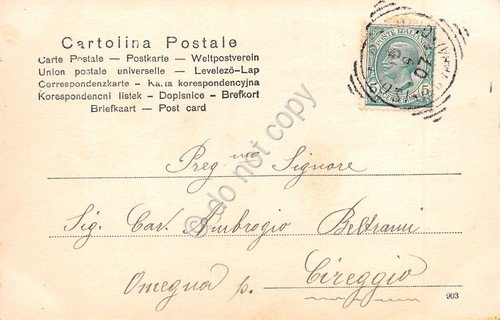 Cartolina Postale
Carte Postale — Postkarte — Weltpostverein
Union postale universelle — Levelező-Lap
Correspondenzkarte - Karta korespondencyjna
Korespondencni listek - Dopisnice - Brefkort
Briefkaart — Post card
POSTE ITALIANE
5
07
do not copy
Preg mo Signore
Sig. Cav. Ambrogio Beltrami
Omegna p. Cireggio
903